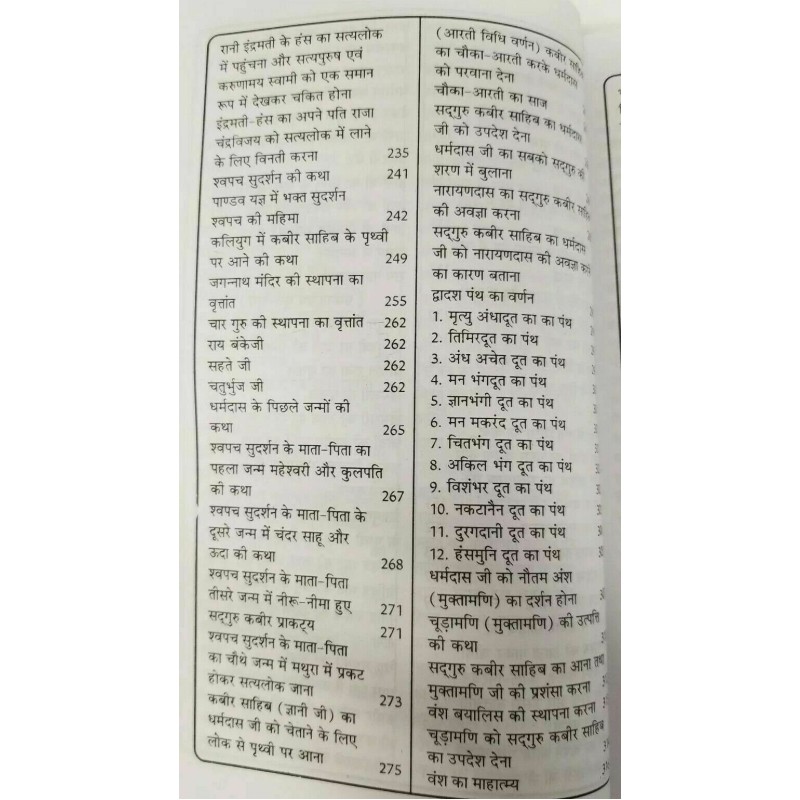 रानी इंद्रमती के हंस का सत्यलोक
में पहुंचना और सत्यपुरुष एवं
करुणामय स्वामी को एक समान
रूप में देखकर चकित होना
इंद्रमती-हंस का अपने पति राजा
चंद्रविजय को सत्यलोक में लाने
के लिए विनती करना 235
श्वपच सुदर्शन की कथा 241
पाण्डव यज्ञ में भक्त सुदर्शन
श्वपच की महिमा 242
कलियुग में कबीर साहिब के पृथ्वी
पर आने की कथा 249
जगन्नाथ मंदिर की स्थापना का
वृत्तांत 255
चार गुरु की स्थापना का वृत्तांत 262
राय बंकेजी 262
सहते जी 262
चतुर्भुज जी 262
धर्मदास के पिछले जन्मों की
कथा 265
श्वपच सुदर्शन के माता-पिता का
पहला जन्म महेश्वरी और कुलपति
की कथा 267
श्वपच सुदर्शन के माता-पिता के
दूसरे जन्म में चंदर साहू और
ऊदा की कथा 268
श्वपच सुदर्शन के माता-पिता
तीसरे जन्म में नीरू-नीमा हुए 271
सद्गुरु कबीर प्राकट्य 271
श्वपच सुदर्शन के माता-पिता
का चौथे जन्म में मथुरा में प्रकट
होकर सत्यलोक जाना 273
कबीर साहिब (ज्ञानी जी) का
धर्मदास जी को चेताने के लिए
लोक से पृथ्वी पर आना 275
(आरती विधि वर्णन) कबीर साहिब
का चौका-आरती करके धर्मदास
को परवाना देना
चौका-आरती का साज
सद्गुरु कबीर साहिब का धर्मदास
जी को उपदेश देना
धर्मदास जी का सबको सद्गुरु की
शरण में बुलाना
नारायणदास का सद्गुरु कबीर साहिब
की अवज्ञा करना
सद्गुरु कबीर साहिब का धर्मदास
जी को नारायणदास की अवज्ञा करने
का कारण बताना
द्वादश पंथ का वर्णन
1. मृत्यु अंधादूत का का पंथ
2. तिमिरदूत का पंथ
3. अंध अचेत दूत का पंथ
4. मन भंगदूत का पंथ
5. ज्ञानभंगी दूत का पंथ
6. मन मकरंद दूत का पंथ
7. चितभंग दूत का पंथ
8. अकिल भंग दूत का पंथ
9. विशंभर दूत का पंथ
10. नकटानैन दूत का पंथ
11. दुरगदानी दूत का पंथ
12. हंसमुनि दूत का पंथ
धर्मदास जी को नौतम अंश
(मुक्तामणि) का दर्शन होना
चूड़ामणि (मुक्तामणि) की उत्पत्ति
की कथा
सद्गुरु कबीर साहिब का आना तथा
मुक्तामणि जी की प्रशंसा करना
वंश बयालिस की स्थापना करना
चूड़ामणि को सद्गुरु कबीर साहिब
का उपदेश देना
वंश का माहात्म्य